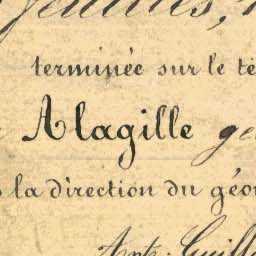 feuilles,
terminée sur le té
Alagille gé
la direction du géo
Ant. Guill